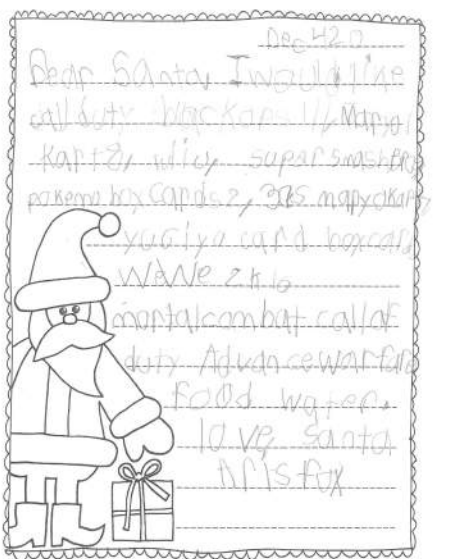 Dec 4 20
Dear Santa, I would like
call duty blackops III, Mario
Kart 8, wiiu, super smash Bros
pokemon box cards 2, 3ds
yugiyo card box
WWE 2k16
mortalcombat call of
duty Advance warfare
food water.
love, santa